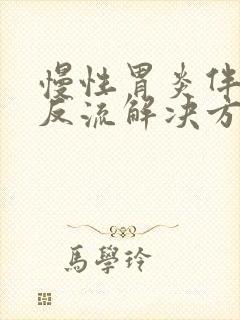 慢性胃炎伴
反流解决方
馬學玲